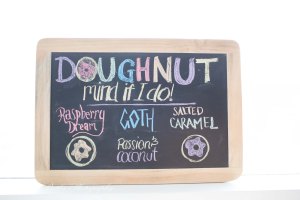 DOUGHNUT
mind if I do!
Raspberry Dream
GOTH
SALTED CARAMEL
Passion & coconut